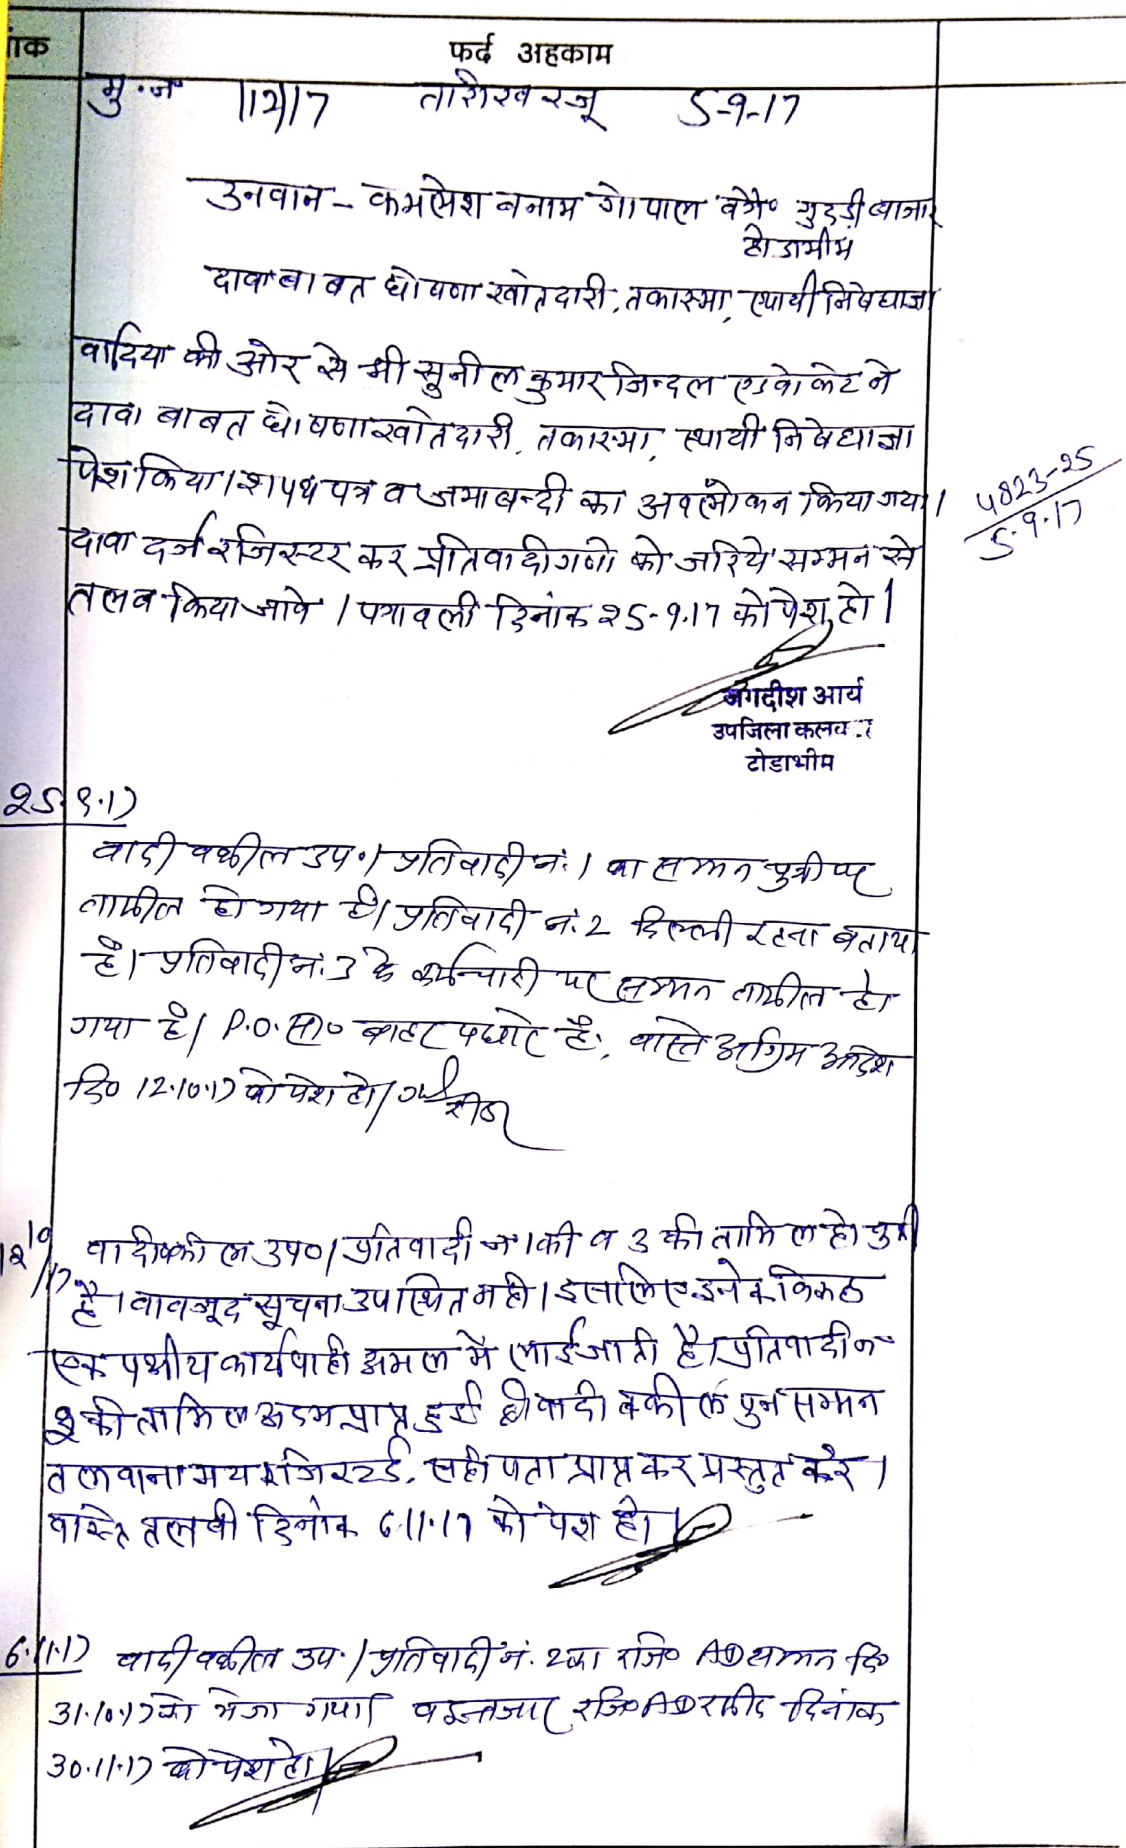 ांक
फर्द अहकाम
मु.नं 112/17 तारीख रजू 5-9-17
उनवान - कमलेश बनाम गोपाल वगै० गुदडी बाजार
टोडाभीम
दावा बाबत घोषणा खातेदारी, तकास्मा, स्थायी निषेधाज्ञा
वादिया की ओर से श्री सुनील कुमार जिन्दल एडवोकेट ने
दावा बाबत घोषणा खातेदारी, तकास्मा, स्थायी निषेधाज्ञा
पेश किया। शपथ पत्र व जमाबन्दी का अवलोकन किया गया।
4823-25
5.9.17
दावा दर्ज रजिस्टर कर प्रतिवादीगणो को जरिये सम्मन से
तलब किया जावे। पत्रावली दिनांक 25-9.17 को पेश हो।
जगदीश आर्य
उपजिला कलक्टर
टोडाभीम
25.9.17
वादी वकील उप०। प्रतिवादी नं. 1 का सम्मन पुत्री पर
तामील हो गया है। प्रतिवादी नं. 2 दिल्ली रहना बताया
है। प्रतिवादी नं. 3 के कर्मचारी पर सम्मन तामील हो
गया है। P.O. सा० बाहर पधारे है, वास्ते अग्रिम आदेश
दि० 12.10.17 को पेश हो।
12/10/17 वादी वकील उप०। प्रतिवादी नं 1 की व 3 की तामिल हो चुकी
है। बावजूद सूचना उपस्थित नही। इसलिए इनके विरूद्ध
एक पक्षीय कार्यवाही अमल मे लाई जाती है। प्रतिवादी नं
2 की तामिल अदम प्राप्त हुई है। वादी वकील पुन सम्मन
तलवाना मय रजिस्टर्ड, सही पता प्राप्त कर प्रस्तुत करे।
वास्ते तलबी दिनांक 6.11.17 को पेश हो।
6.11.17 वादी वकील उप.। प्रतिवादी नं. 2 का रजि० AD सम्मन दि०
31.10.17 को भेजा गया। व इन्तजार रजि० AD रसीद दिनांक
30.11.17 को पेश हो।